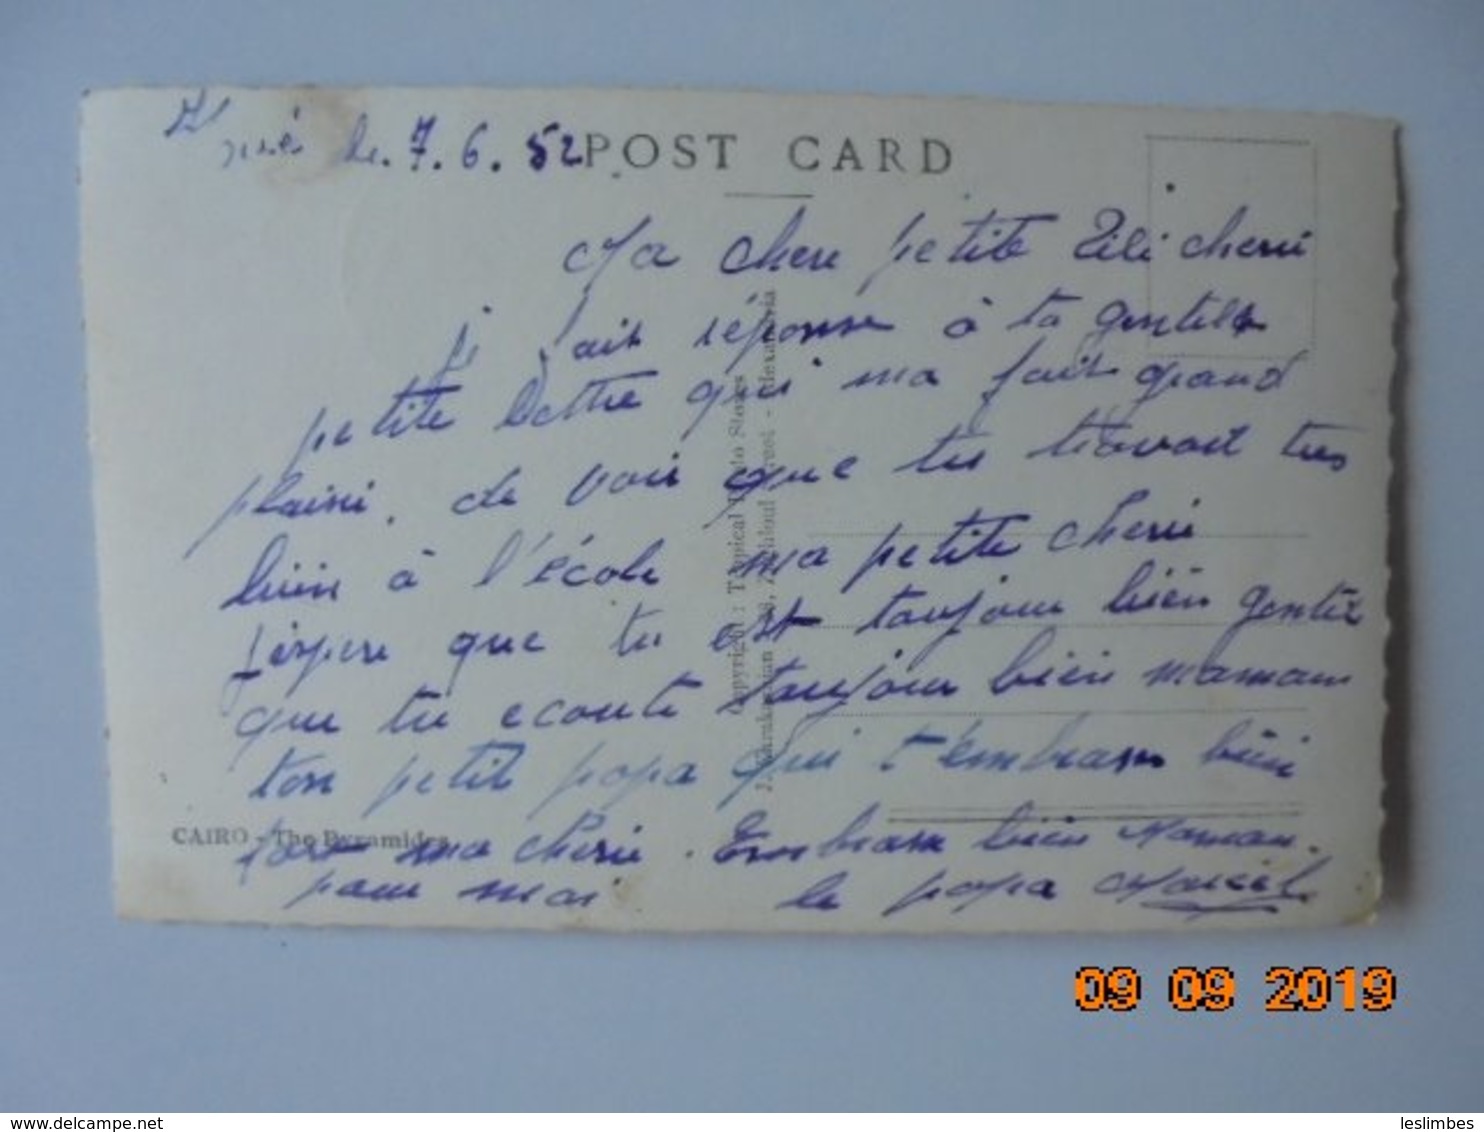 le. 7. 6. 52 POST CARD
Ma chere petite Lili cherie
je fait réponse à ta gentille
petite Lettre qui ma fait grand
plaisir. de voir que tu travail tres
bien à l'école ma petite cherie
J'espere que tu est toujour bien gentil
que tu ecoute toujour bien maman
ton petit papa qui t'embrasse bien
fort ma cherie. Embrasse bien Maman.
pour moi le papa Marcel
CAIRO - The Pyramides
Copyright : Tropical Photo Stores
Street - Alexandria
09 09 2019
leslimbes